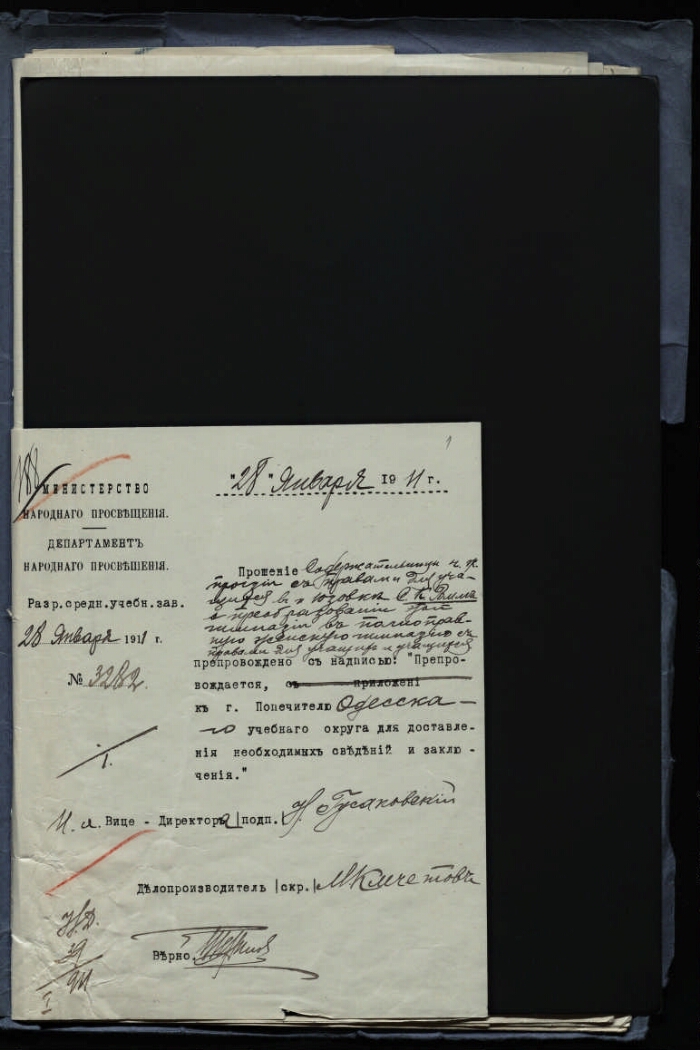 1
МИНИСТЕРСТВО
НАРОДНАГО ПРОСВѢЩЕНІЯ.
ДЕПАРТАМЕНТЪ
НАРОДНАГО ПРОСВѢЩЕНІЯ.
Разр.средн.учебн.зав.
28 Января 1911 г.
№ 3282.
"28" Января 1911 г.
Прошеніе Содержательницы ч. 
прогіи съ правами для уча-
щихся въ п. Юзовка С. К. Ромма
о преобразованіи этой
гимназіи въ полноправ-
ную женскую гимназію съ
правами для учащихъ и учащихся
препровождено съ надписью: "Препро-
вождается, съ приложені
къ г. Попечителю Одесска-
го учебнаго округа для доставле-
нія необходимыхъ свѣдѣній и заклю-
ченія."
1.
И. д. Вице - Директора |подп.| Н. Гусаковскій
Дѣлопроизводитель |скр.| М Клечетовъ
Вѣрно: